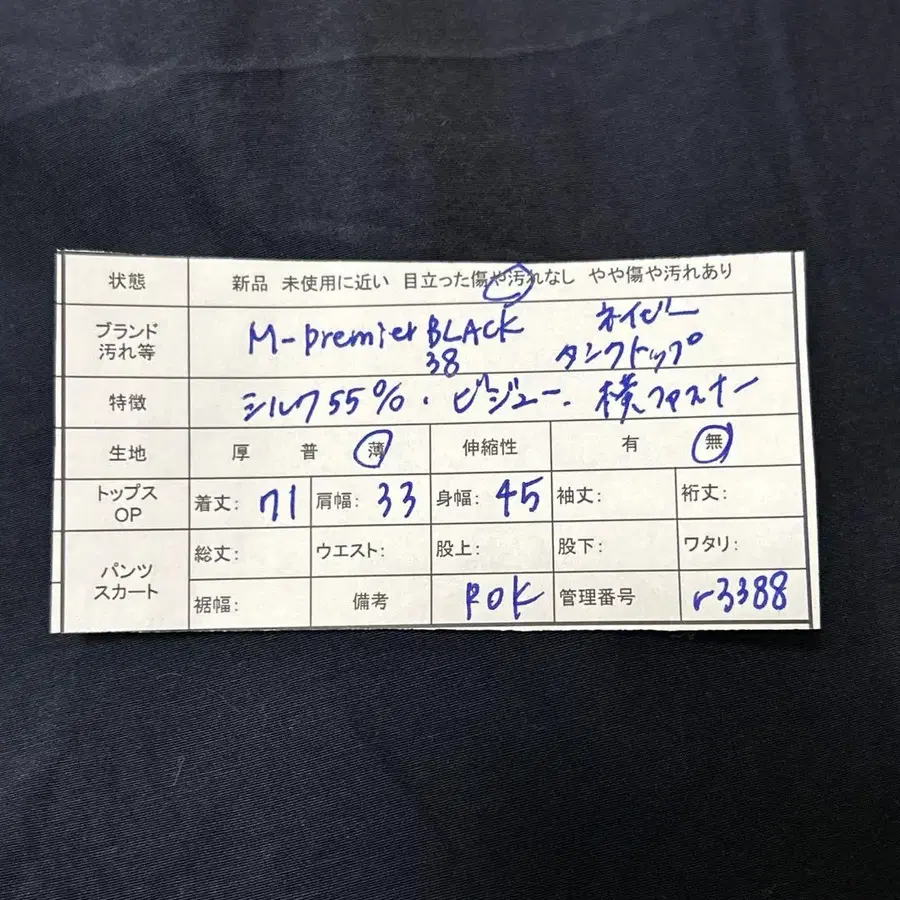 状態 新品 未使用に近い 目立った傷や汚れなし やや傷や汚れあり
ブランド 汚れ等 M-premier BLACK ネイビー
38 タンクトップ
特徴 シルク55%・ビジュー・横ファスナー
生地 厚 普 薄 伸縮性 有 無
トップス OP 着丈: 71 肩幅: 33 身幅: 45 袖丈: 裄丈:
パンツ スカート 総丈: ウエスト: 股上: 股下: ワタリ:
裾幅: 備考 POK 管理番号 r3388